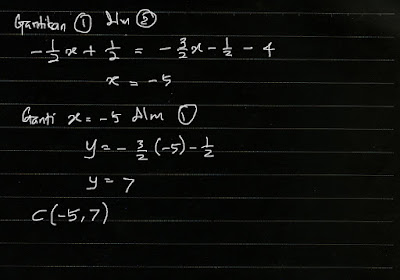 Gantikan ① dlm ②
-1/2 x + 1/2 = -3/2 x - 1/2 - 4
x = -5
Ganti x = -5 dlm ①
y = -3/2 (-5) - 1/2
y = 7
C(-5, 7)